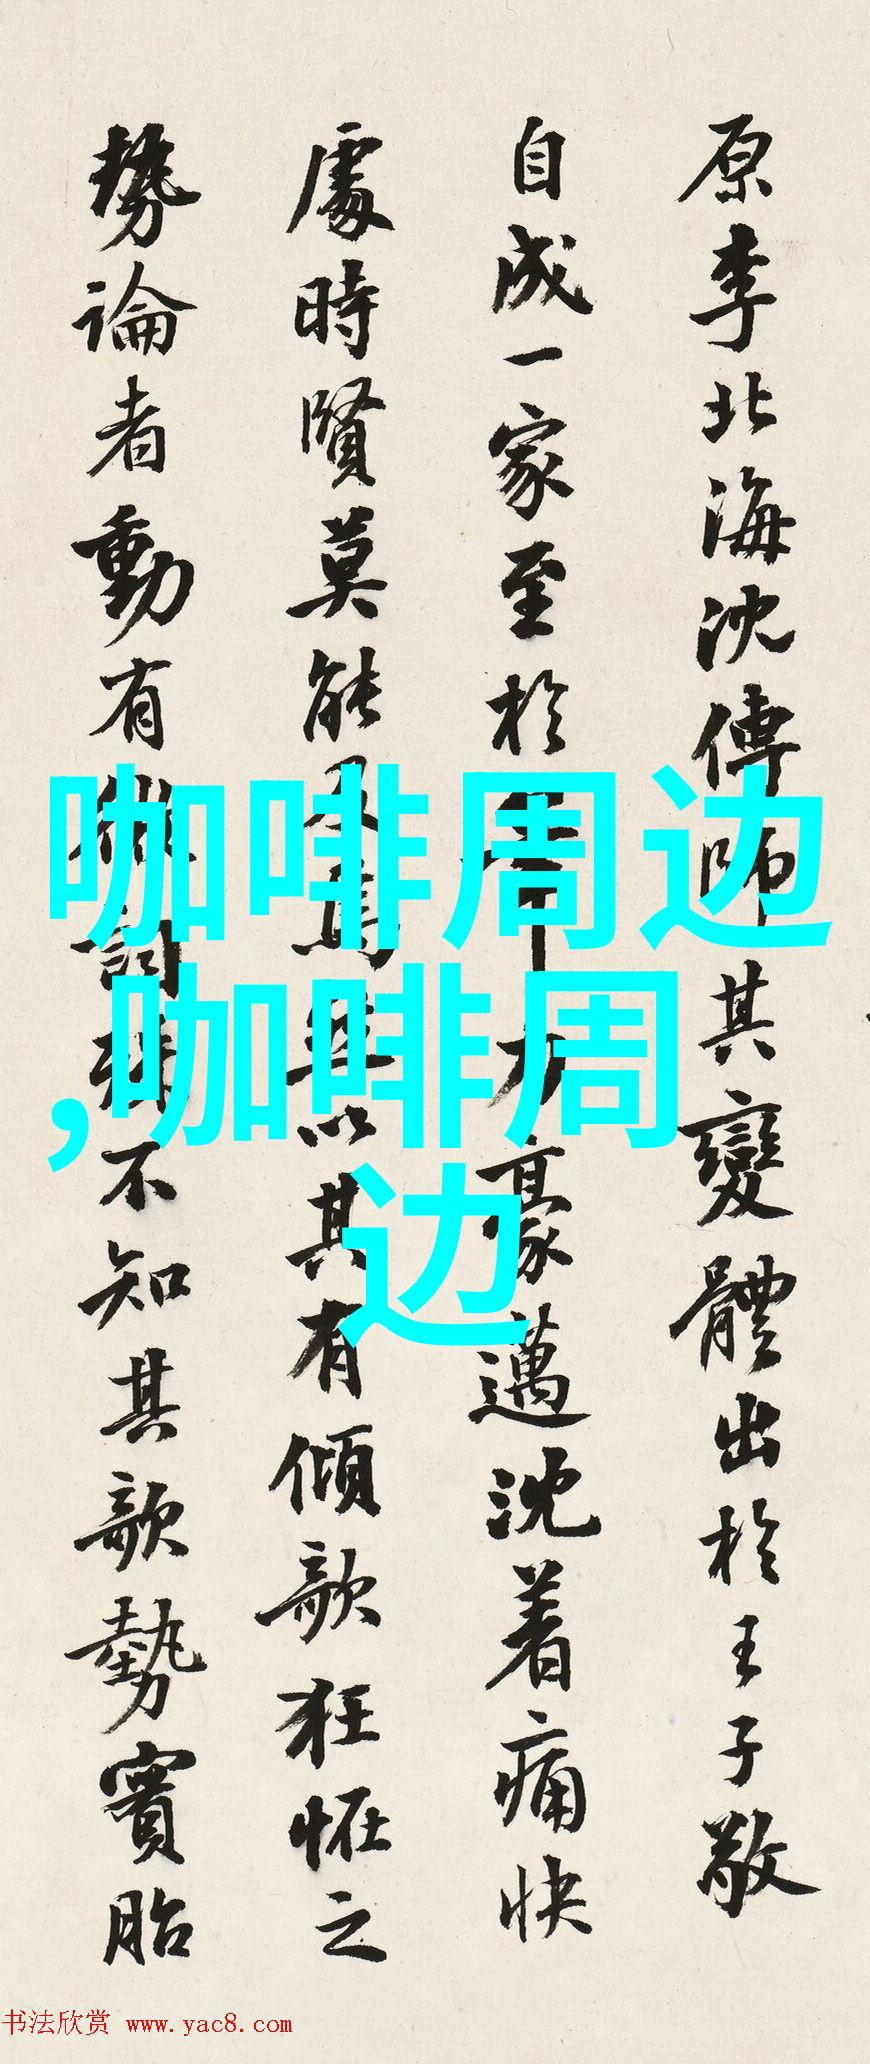 原李北海沈傳師其變體出於王子敬
自成一家至於才力豪邁沈着痛快
處時賢莫能及焉无以其有傾欹狂怪之
勢論者動有微詞殊不知其欹勢實胎
咖啡周边
,咖啡周
边
书法欣赏 www.yac8.com